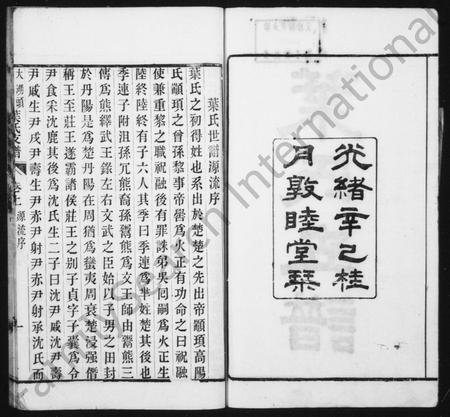 光緒辛巳桂
月敦睦堂栞
葉氏世譜源流序
葉氏之初得姓也系出於楚楚之先出帝顓頊高陽
氏顓頊之曾孫黎事帝嚳為火正有功命之曰祝融
使兼重黎之職祝融後有罪誅弟吳囘嗣為火正生
陸終陸終有子六人其季曰季連為羋姓楚其後也
季連子附沮孫冗熊裔孫鬻熊為文王師由鬻熊三
傳為熊繹武王錄左右文武之臣始以子男之田封
於丹陽是為楚丹陽在周猶為蠻夷周衰楚浸强僭
稱王至莊王遂霸諸侯莊王之別子貞字子囊為令
尹食采沈鹿其後為沈氏生二子曰沈尹戚沈尹壽
尹戚生尹戌尹壽生尹赤尹射尹赤尹射承沈氏而
大淵頭葉氏支譜
源流序
一
FamilySearch International